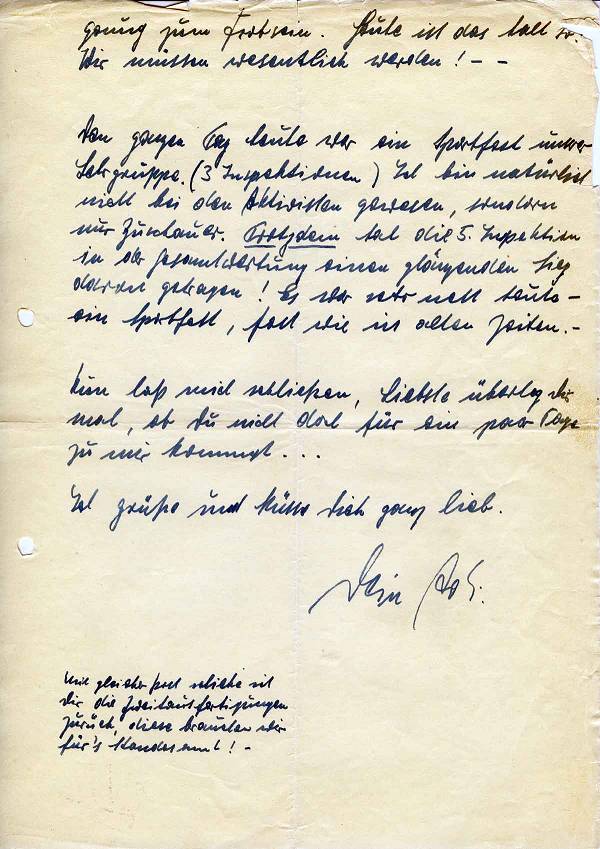 genug zum Fortsein. Heute ist das halt so.
Wir müssen wesentlich werden! - -
Den ganzen Tag heute war ein Sportfest unserer
Lehrgruppe. (3 Inspektionen) Ich bin natürlich
nicht bei den Aktivisten gewesen, sondern
nur Zuschauer. Trotzdem hat die 5. Inspektion
in der Gesamtwertung einen glänzenden Sieg
davon getragen! Es war sehr nett heute -
ein Sportfest, fast wie in alten Zeiten. -
Nun laß mich schließen, Liebste überleg Dir
mal, ob Du nicht doch für ein paar Tage
zu mir kommst . . .
Ich grüße und küsse Dich ganz lieb.
Dein
Mit gleicher Post schicke ich
Dir die Zweitausfertigungen
zurück, diese brauchen wir
für's Standesamt! -